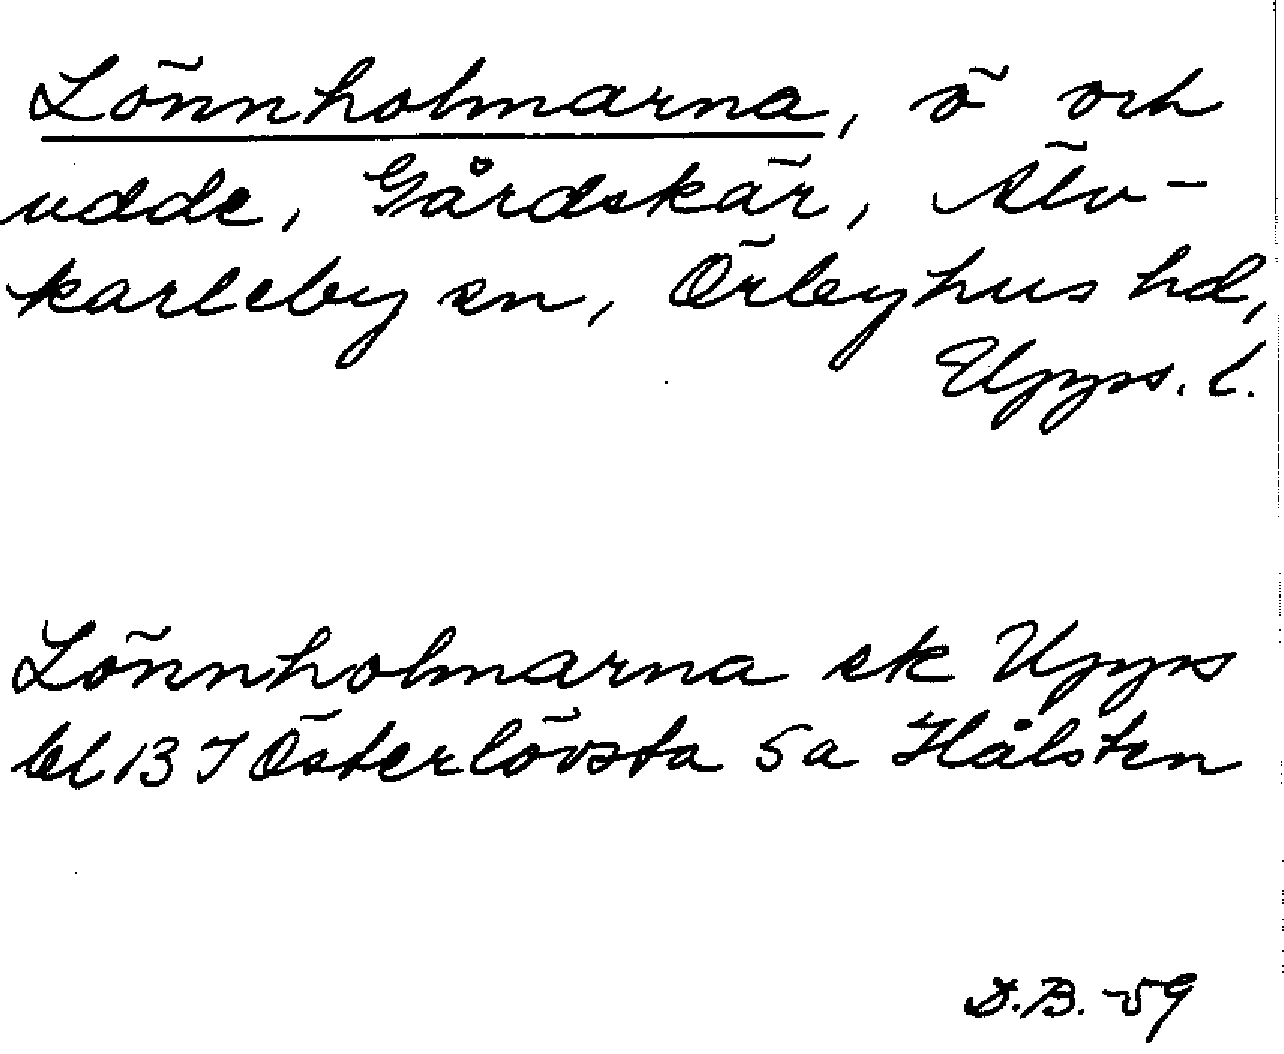 Lönnholmarna, ö och
udde, Gårdskär, Älv-
karleby sn, Örbyhus hd,
Upps. l.
Lönnholmarna ek Upps
bl 13 I Österlövsta 5a Hålsten
D.B. -59